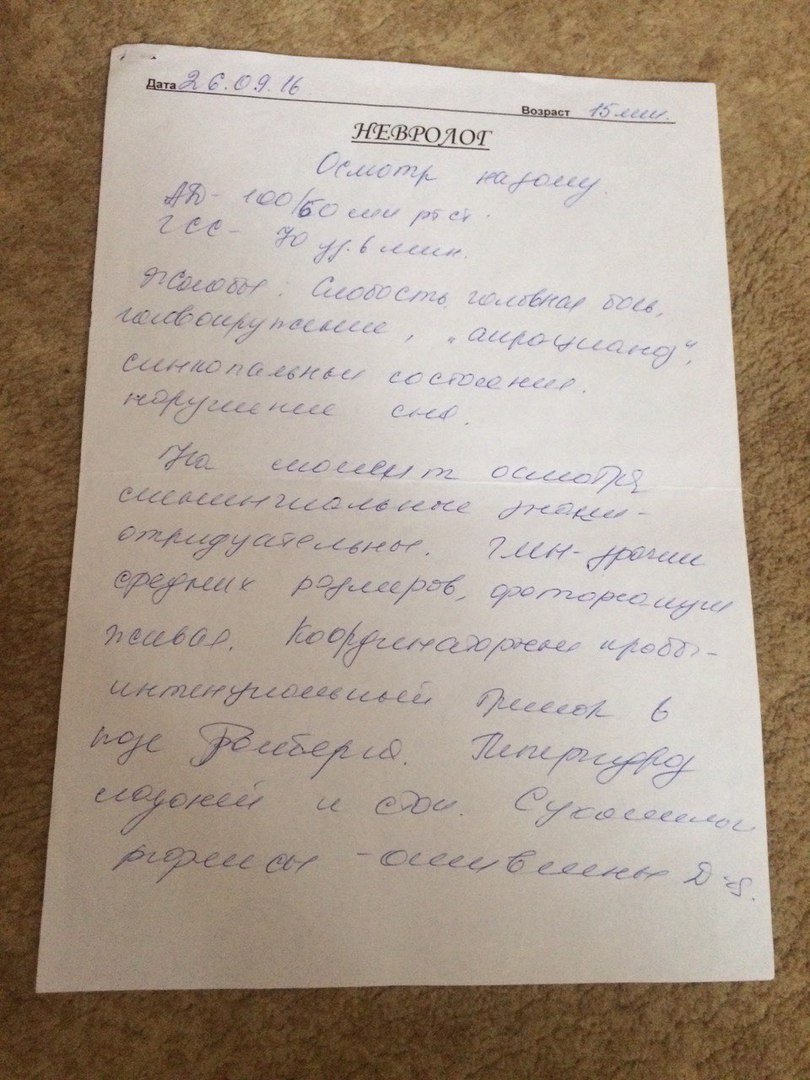 Дата 26.09.16
Возраст 15 лет.
НЕВРОЛОГ
Осмотр на дому.
АД- 100/60 мм рт ст.
ЧСС- 70 уд. в мин.
Жалобы: Слабость, головная боль,
головокружение,
синкопальные состояния.
нарушение сна.
На момент осмотра
менингиальные знаки-
отрицательные. ЧМН- зрачки
средних размеров, фотореакция
живая. Координаторные пробы-
интенционный тремор в
позе Ромберга. Гипергидроз
ладоней и стоп. Сухожильные
рефлексы - оживлены D=S.